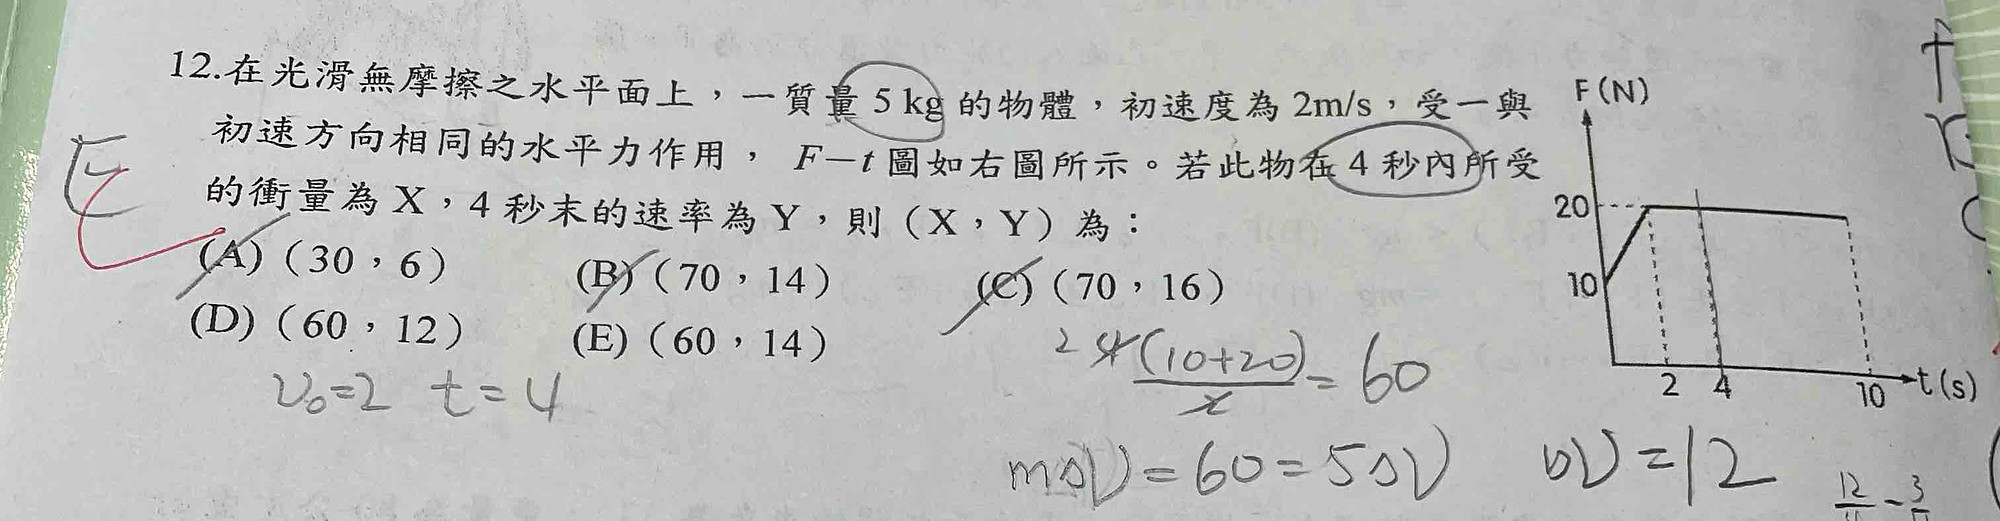 12.在光滑無摩擦之水平面上，一質量 5 kg 的物體，初速度為 2m/s，受一與
初速方向相同的水平力作用， F－t 圖如右圖所示。若此物在 4 秒內所受
的衝量為 X，4 秒末的速率為 Y，則（X，Y）為：
(A)（30，6） (B)（70，14） (C)（70，16）
(D)（60，12） (E)（60，14）
E
F(N)
20
10
2 4 10 t(s)
V₀=2 t=4
2 4(10+20)/2 = 60
mΔV=60=5ΔV ΔV=12